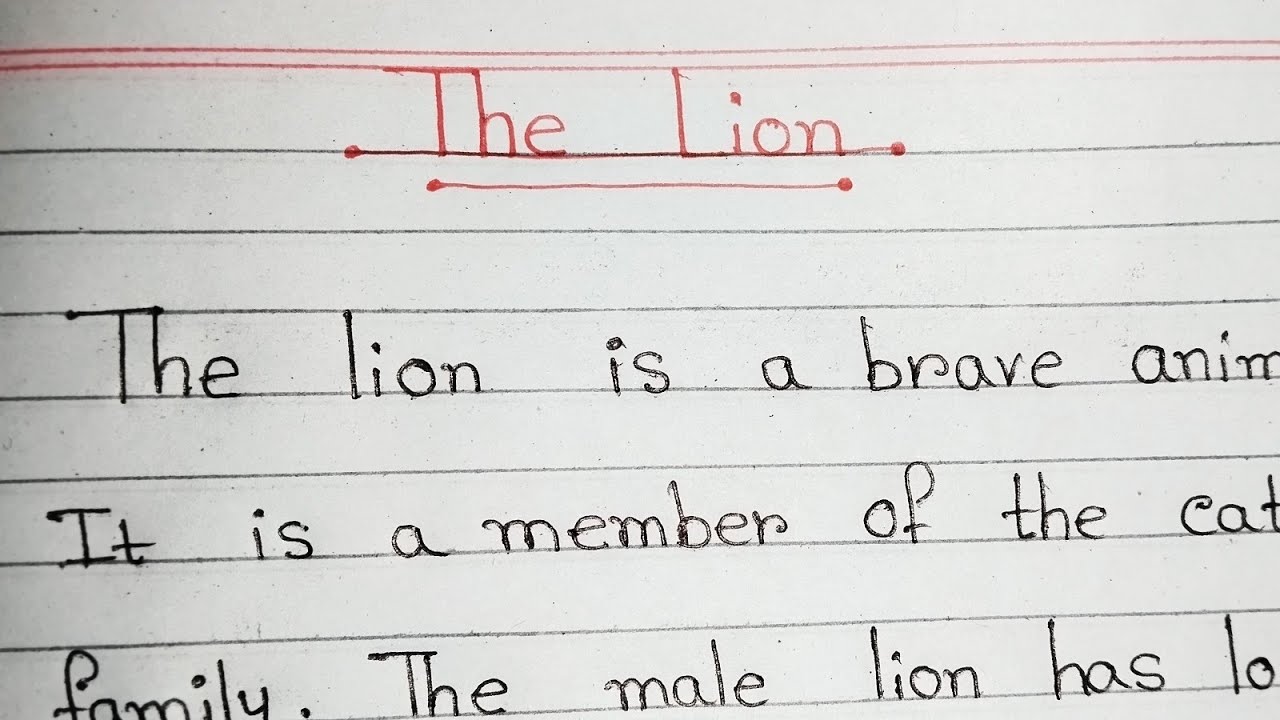 The Lion
The lion is a brave anim
It is a member of the cat
family. The male lion has lo